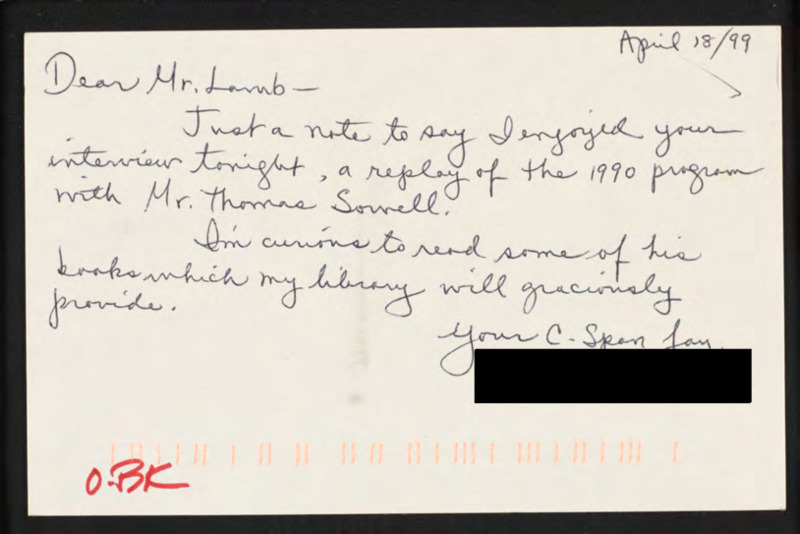 April 18/99
Dear Mr. Lamb—
Just a note to say I enjoyed your
interview tonight, a replay of the 1990 program
with Mr. Thomas Sowell.
I'm curious to read some of his
books which my library will graciously
provide.
Your C-Span fan,
O-BK